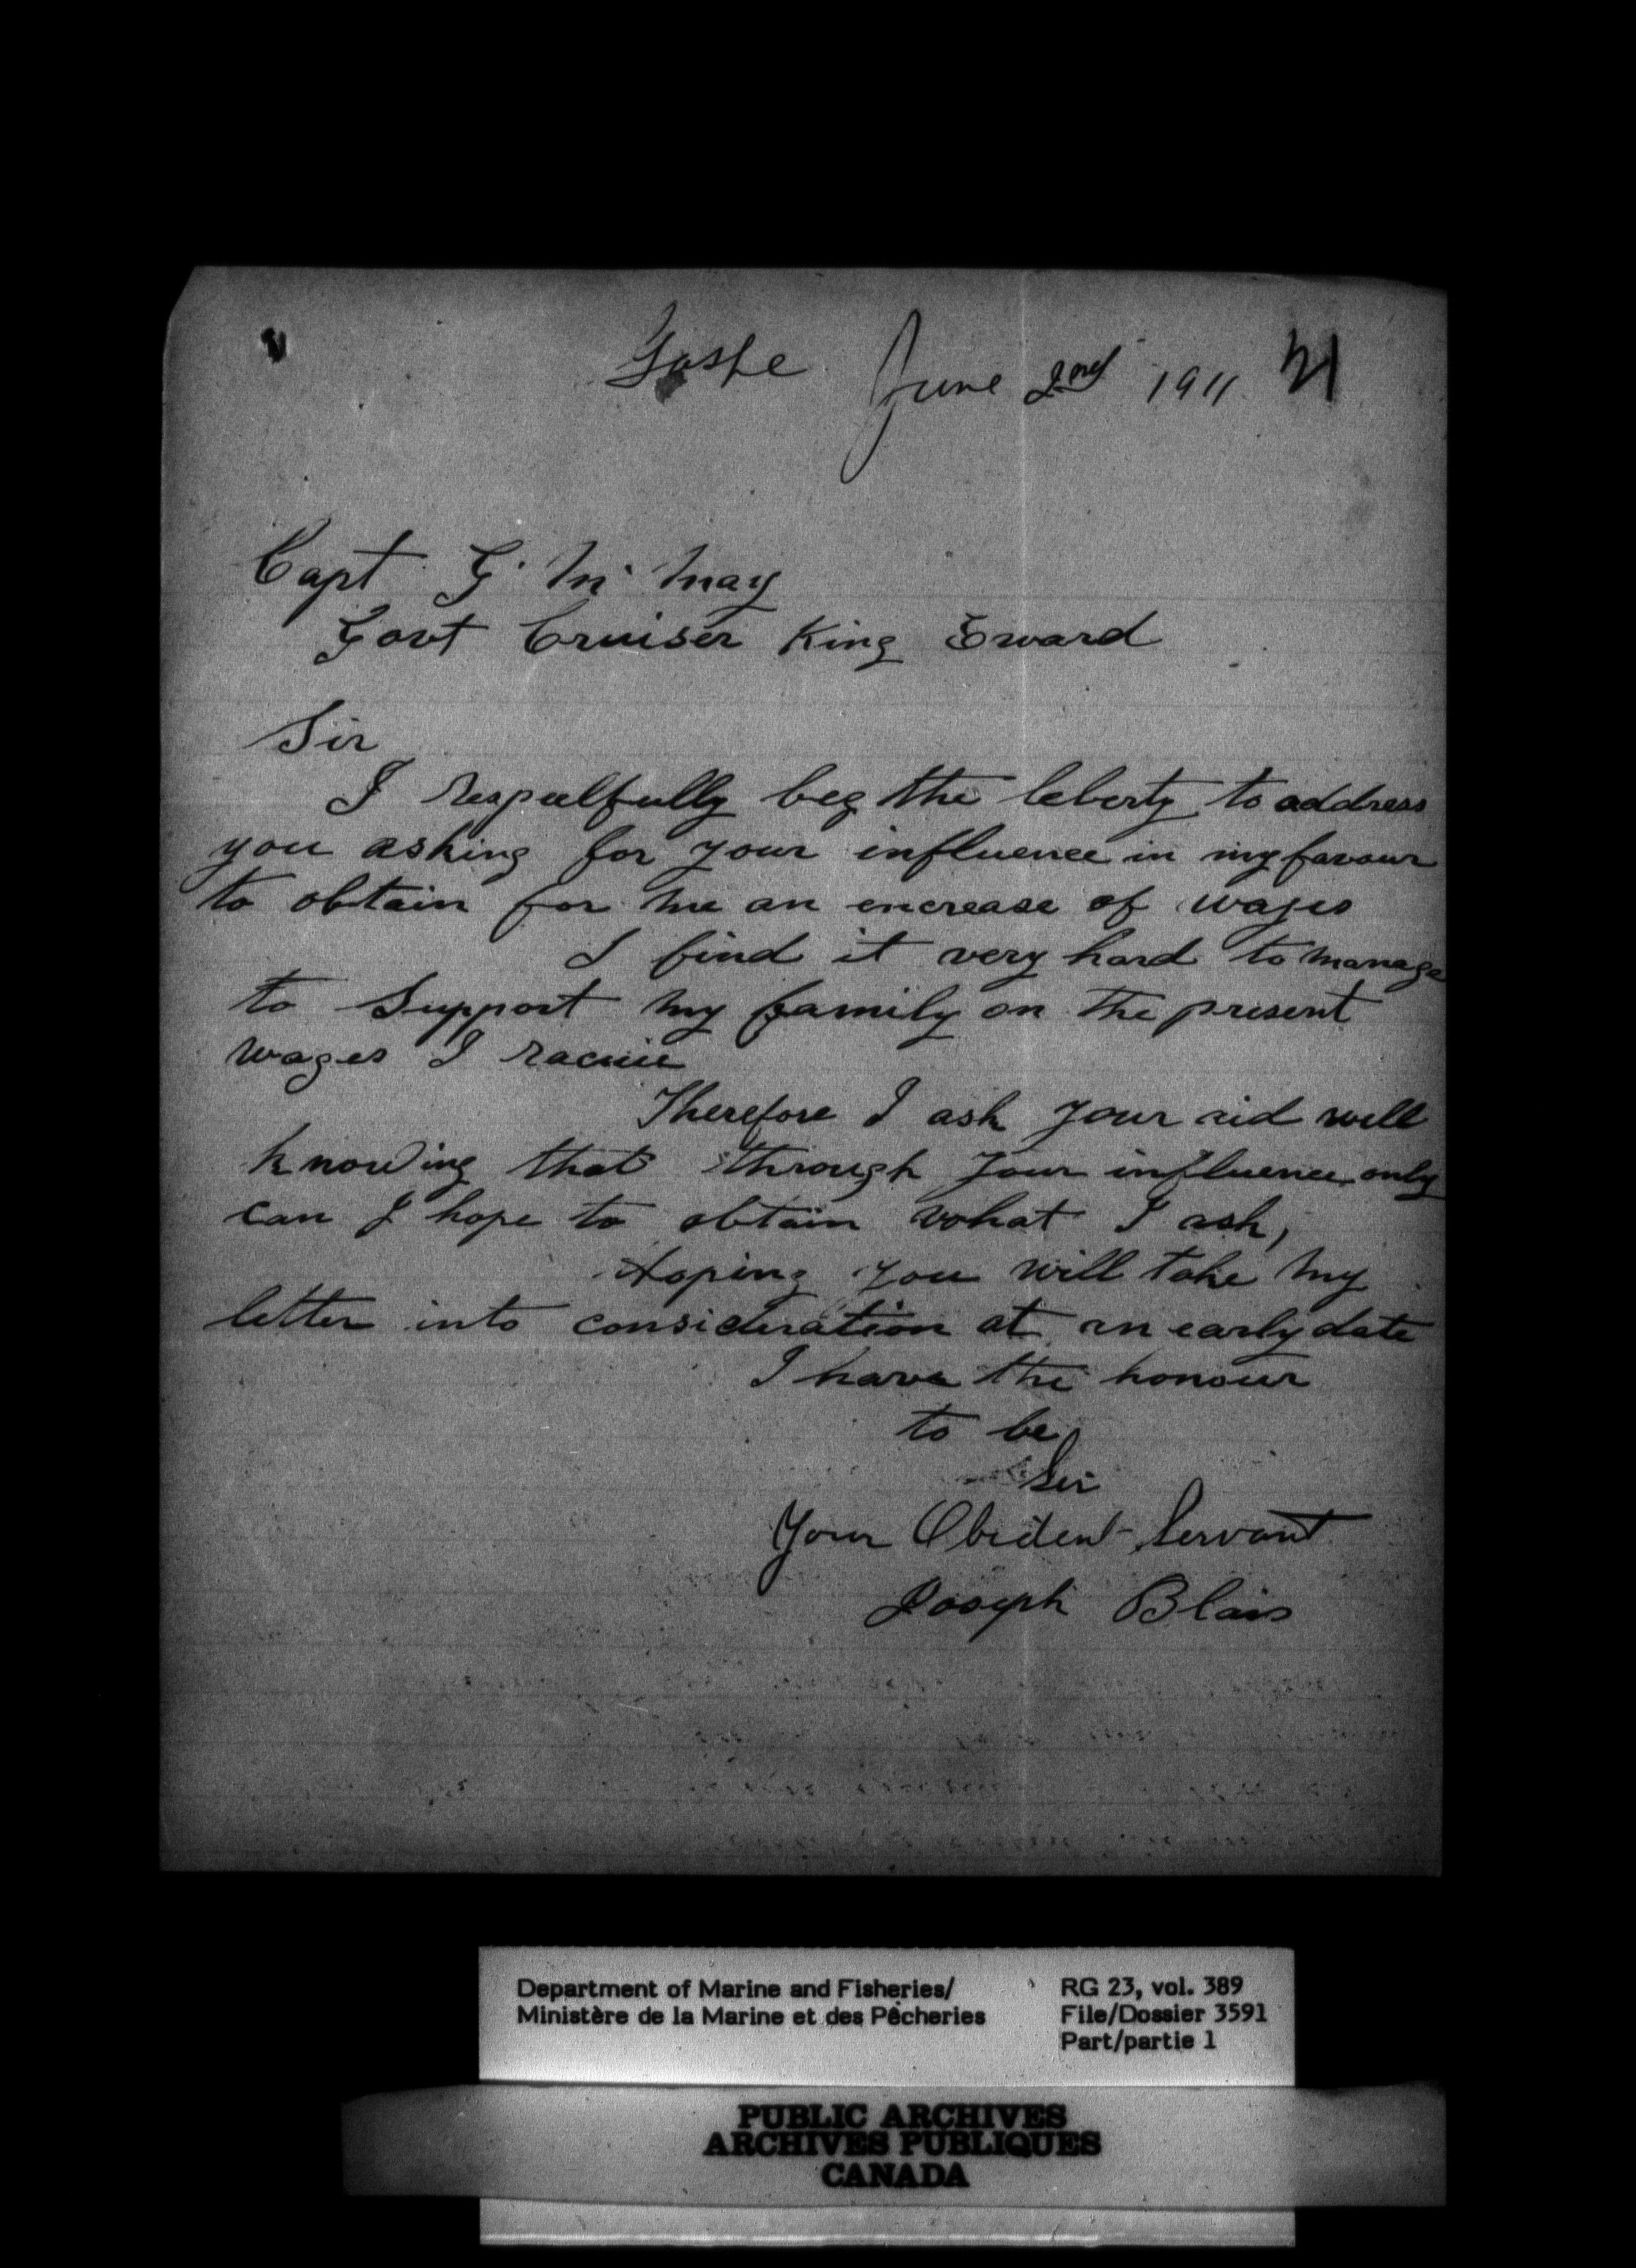 Gaspe June 2nd 1911 21
Capt G. M. May
Govt Cruiser King Eward
Sir
I respectfully beg the leberty to address
you asking for your influence in my favour
to obtain for me an encrease of wages
I find it very hard to manage
to Support my family on the present
wages I
Therefore I ask your aid well
knowing that through your influence only
can I hope to obtain what I ask,
Hoping you will take my
letter into consideration at an early date
I have the honour
to be
Sir
Your Obident Servant
Joseph Blais
Department of Marine and Fisheries/ RG 23, vol. 389
Ministère de la Marine et des Pêcheries File/Dossier 3591
Part/partie 1
PUBLIC ARCHIVES
ARCHIVES PUBLIQUES
CANADA